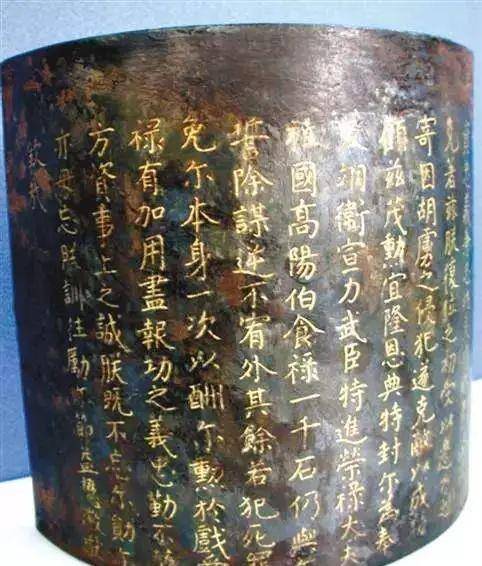 克著茲朕復位之初受以邊
寄因胡虜之侵犯遂克敵以成
顧茲茂勳宜隆恩典特封尔為奉
翊衛宣力武臣特進榮祿大夫
柱國高陽伯食祿一千石仍與
誓除謀逆不宥外其餘若犯死罪
免尔本身一次以酬尔勳於戲
祿有加用盡報功之義忠勤不
方資事上之誠朕既不忘尔勳
亦毋忘朕訓往勵節益
欽哉